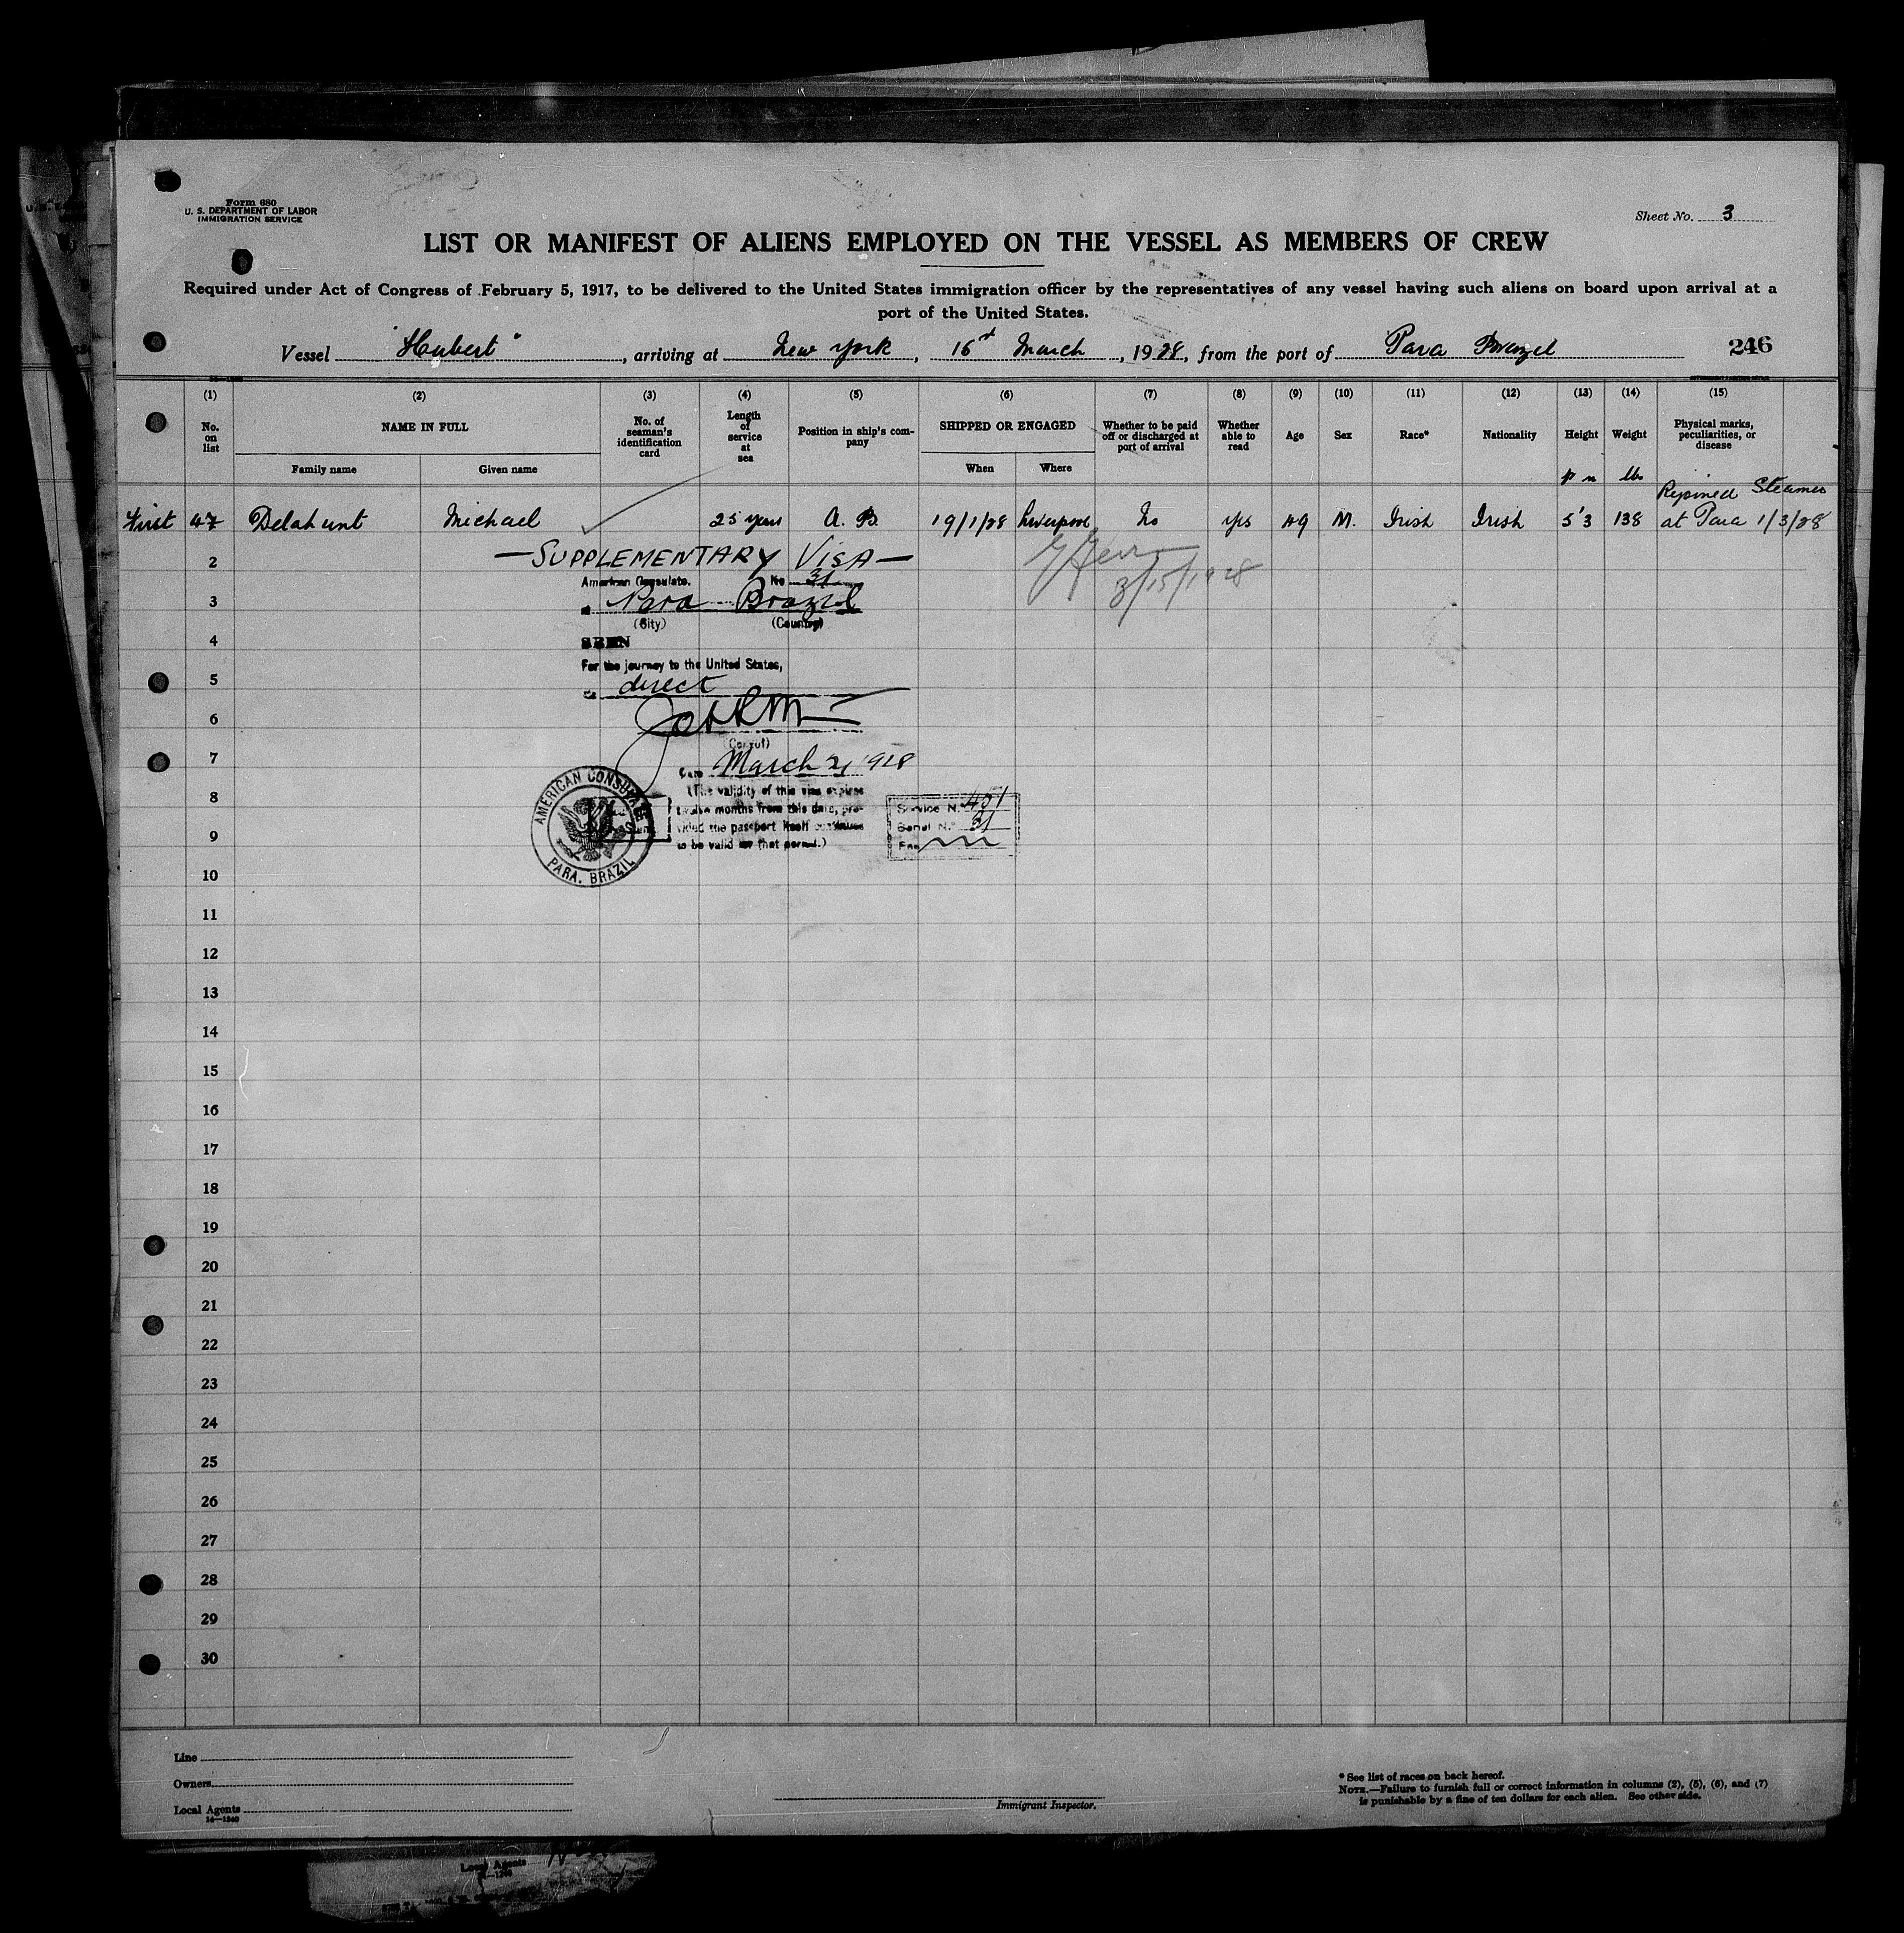 Form 680
U. S. DEPARTMENT OF LABOR
IMMIGRATION SERVICE
Sheet No. 3
LIST OR MANIFEST OF ALIENS EMPLOYED ON THE VESSEL AS MEMBERS OF CREW
Required under Act of Congress of February 5, 1917, to be delivered to the United States immigration officer by the representatives of any vessel having such aliens on board upon arrival at a
port of the United States.
Vessel "Hubert", arriving at New York, 16 March, 1928, from the port of Para Brazil 246
(1) (2) (3) (4) (5) (6) (7) (8) (9) (10) (11) (12) (13) (14) (15)
No. on list
NAME IN FULL
Family name Given name
No. of seaman's identification card
Length of service at sea
Position in ship's company
SHIPPED OR ENGAGED
When Where
Whether to be paid off or discharged at port of arrival
Whether able to read
Age
Sex
Race*
Nationality
Height
Weight lbs
Physical marks, peculiarities, or disease
Rejoined Steamer
First 47 Delahunt Michael 25 years A. B. 19/1/28 Liverpool No yes 49 M. Irish Irish 5'3 138 at Para 1/3/28
2 —SUPPLEMENTARY VISA—
American Consulate. No 31
3/15/1928
3 Para Brazil
(City) (Country)
4 SEEN
For the journey to the United States,
5 direct
6
(Consul)
7 Date March 2, 1928
8 (The validity of this visa expires
twelve months from this date, pro-
9 vided the passport itself continues
to be valid for that period.)
AMERICAN CONSULATE
PARA. BRAZIL
Service No. 451
Serial No. 31
Fee
10
11
12
13
14
15
16
17
18
19
20
21
22
23
24
25
26
27
28
29
30
Line
Owners
Local Agents
14—1240
Immigrant Inspector.
* See list of races on back hereof.
NOTE.—Failure to furnish full or correct information in columns (2), (5), (6), and (7)
is punishable by a fine of ten dollars for each alien. See other side.
Local Agents